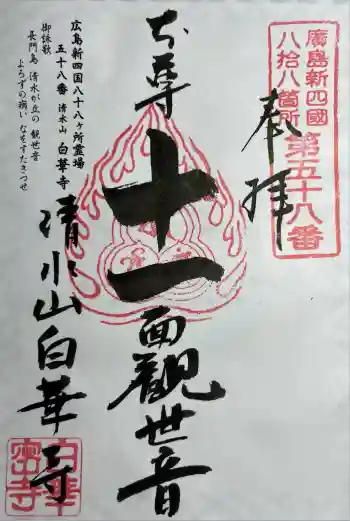 廣島新四國
八拾八箇所
第五十八番
奉拝
本尊
十一面観世音
広島新四国八十八ヶ所霊場
五十八番 清水山 白華寺
御詠歌
長門島 清水が丘の 観世音
よろずの病い なをすたきつせ
清水山白華寺
白華
密寺